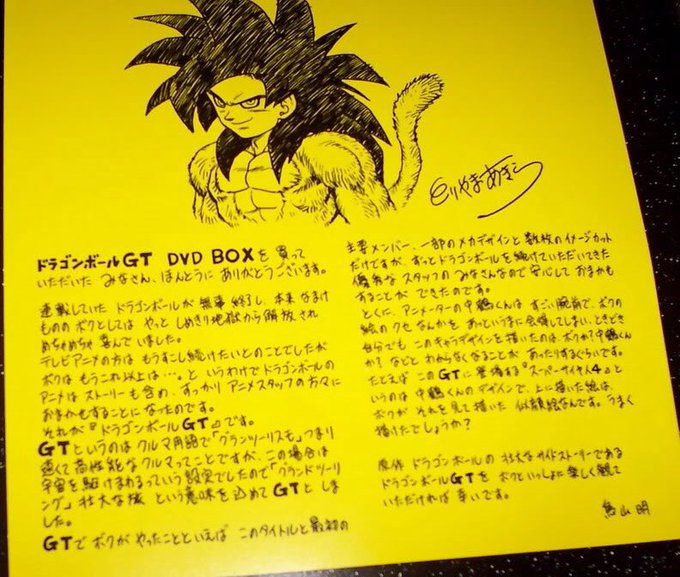 とりやまあきら
ドラゴンボールGT DVD BOXを買って
いただいた みなさん、ほんとうに ありがとうございます。
連載していた ドラゴンボールが 無事 終了し、本来 なまけ
ものの ボクとしては やっと しめきり地獄から 解放され
めちゃめちゃ 喜んで いました。
テレビアニメの方は もうすこし続けたいとのことでしたが
ボクは もうこれ以上は…。と いうわけで ドラゴンボールの
アニメは ストーリーも含め、すっかり アニメスタッフの方々に
おまかせすることに なったのです。
それが『ドラゴンボールGT』です。
GTというのは クルマ用語で「グランツーリスモ」つまり
速くて 高性能な クルマってことですが、この場合は
宇宙を 駆けまわるっていう 設定でしたので「グランドツーリ
ング」壮大な旅 という意味を 込めて GTと しま
した。
GTで ボクが やったことといえば このタイトルと 最初の
主要メンバー、一部のメカデザインと 数枚の イメージカット
だけですが、ずっとドラゴンボールを 続けていただいてきた
優秀な スタッフの みなさんなので 安心して おまかせ
することが できたのです。
とくに、アニメーターの 中鶴くんは すごい腕前で、ボクの
絵の クセ なんかを あっというまに 会得してしまい、ときどき
自分でも このキャラデザインを 描いたのは、ボクか? 中鶴くん
か? などと わからなくなることが あったりするぐらいです。
たとえば このGTに 登場する『スーパーサイヤ人4』と
いうのは 中鶴くんの デザインで、上に描いた絵は、
ボクが それを見て描いた 似顔絵なんです。うまく
描けたでしょうか?
原作 ドラゴンボールの 壮大な サイドストーリーである
ドラゴンボールGTを ボクといっしょに 楽しく 観て
いただければ 幸いです。
鳥山明